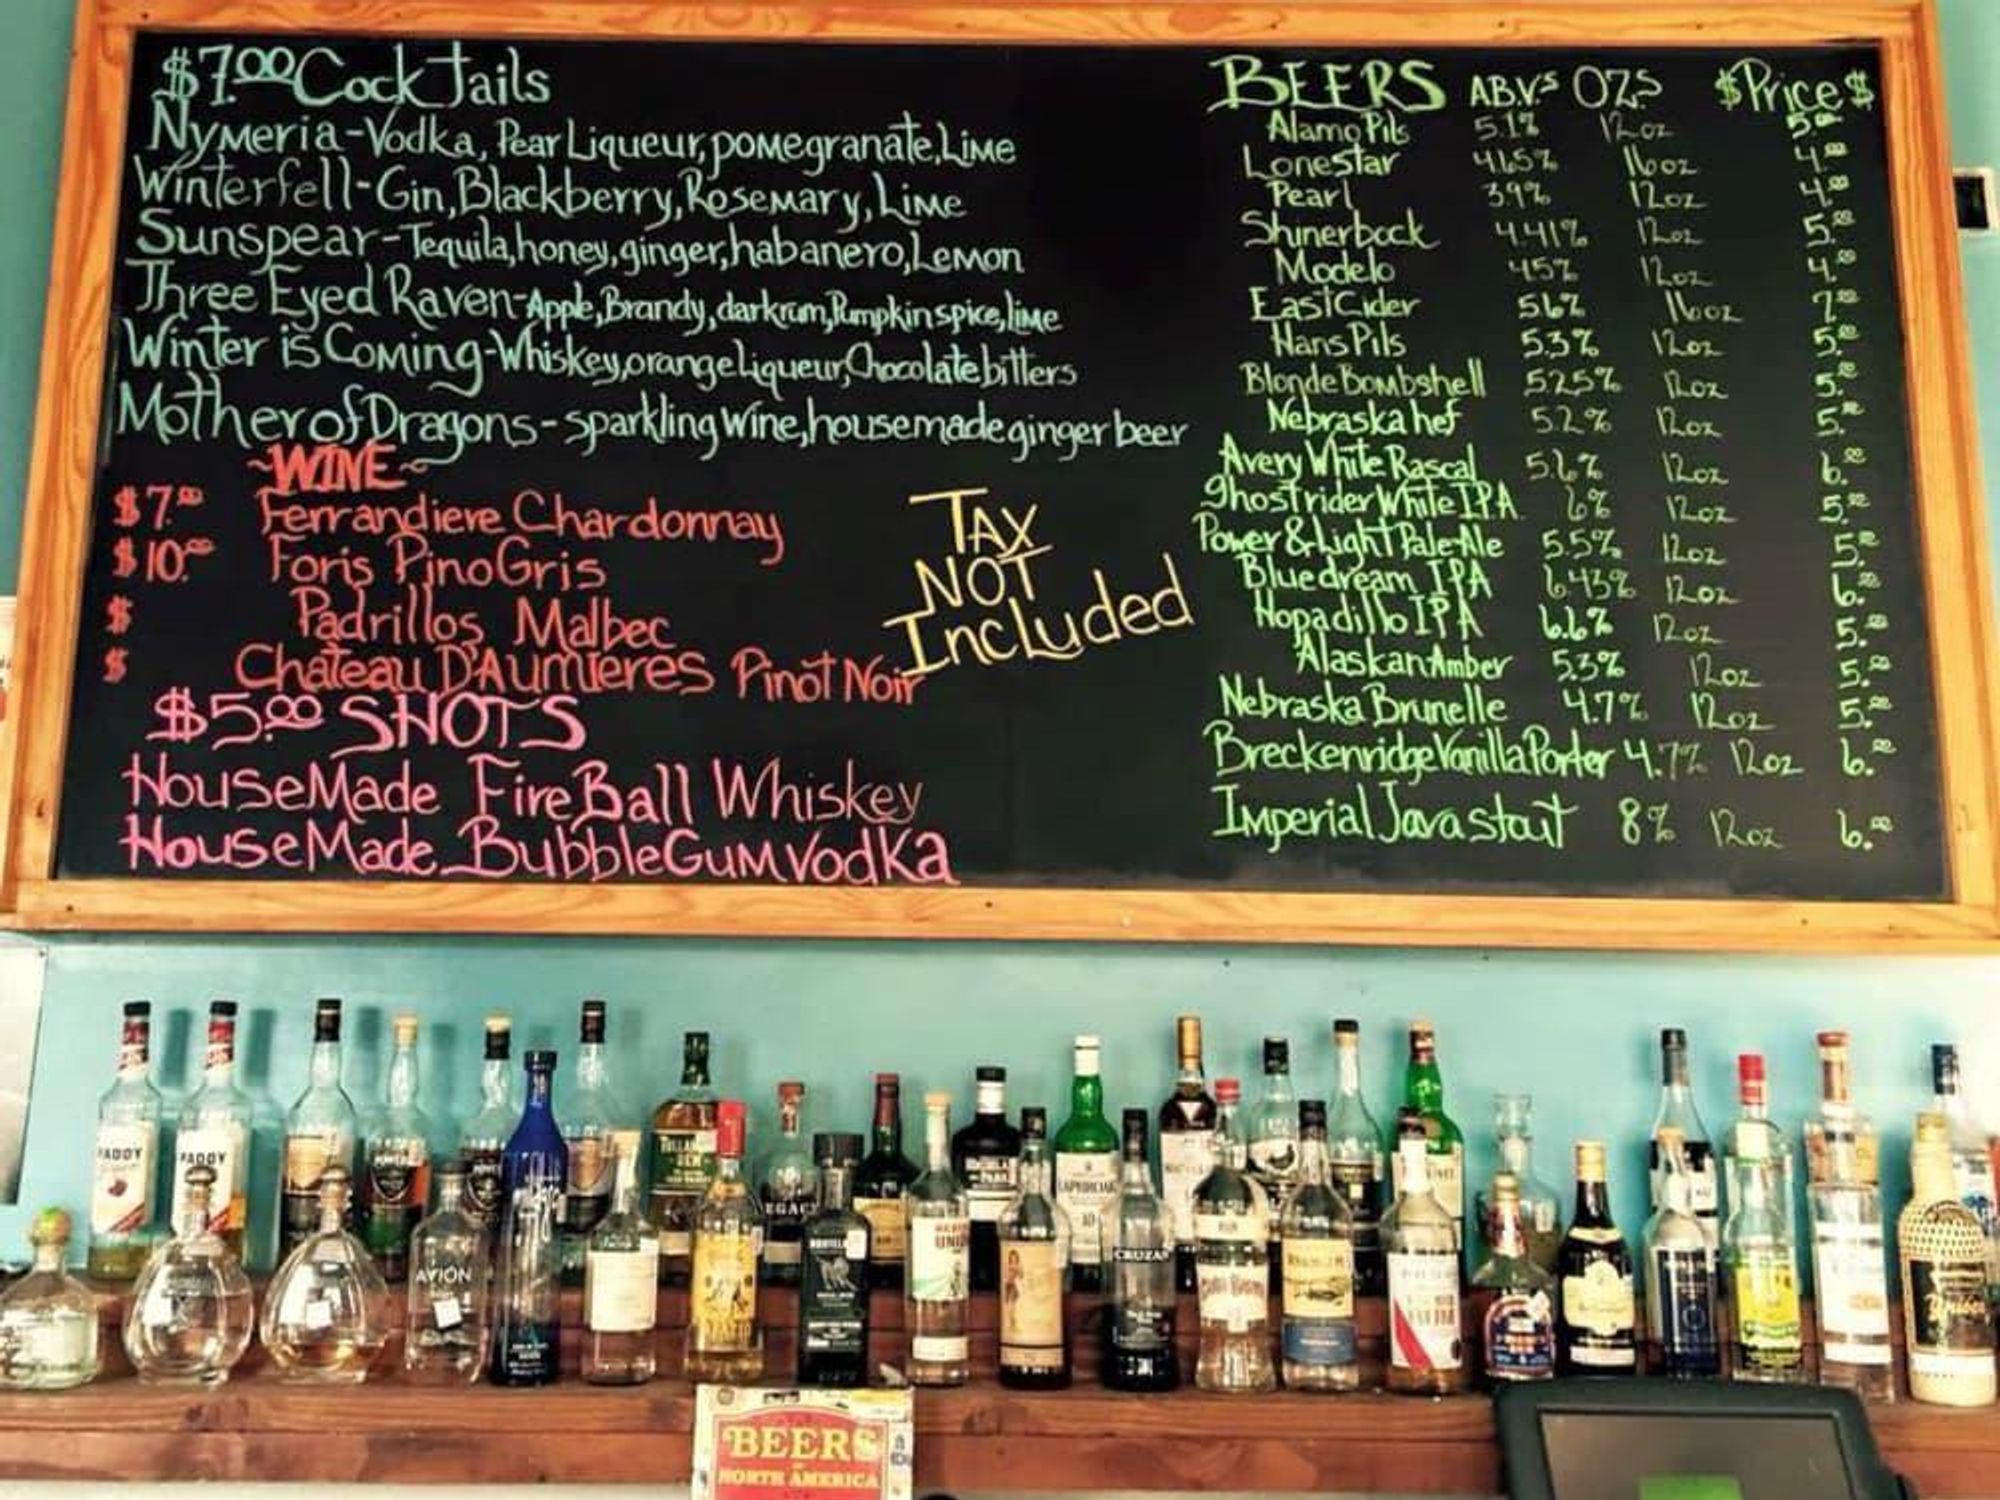 $7.00 Cocktails
Nymeria-Vodka, Pear Liqueur, pomegranate, Lime
Winterfell-Gin, Blackberry, Rosemary, Lime
Sunspear-Tequila, honey, ginger, habanero, Lemon
Three Eyed Raven-Apple, Brandy, dark rum, Pumpkin spice, lime
Winter is Coming-Whiskey, orange Liqueur, Chocolate bitters
Mother of Dragons-sparkling wine, housemade ginger beer
~WINE~
$7.00 Ferrandiere Chardonnay
$10.00 Foris Pino Gris
$ Padrillos Malbec
$ Chateau D'Aumieres Pinot Noir
$5.00 SHOTS
HouseMade FireBall Whiskey
HouseMade BubbleGum Vodka
TAX
NOT
Included
BEERS A.B.V.s OZs $Price$
Alamo Pils 5.1% 12oz 5.00
Lonestar 4.65% 16oz 4.00
Pearl 3.9% 12oz 4.00
Shinerbock 4.41% 12oz 5.00
Modelo 4.5% 12oz 4.00
East Cider 5.6% 16oz 7.00
Hans Pils 5.3% 12oz 5.00
Blonde Bombshell 5.25% 12oz 5.00
Nebraska hef 5.2% 12oz 5.00
Avery White Rascal 5.6% 12oz 6.00
ghostrider White I.P.A 6% 12oz 5.00
Power & Light Pale Ale 5.5% 12oz 5.00
Bluedream IPA 6.43% 12oz 6.00
Hopadillo IPA 6.6% 12oz 5.00
Alaskan Amber 5.3% 12oz 5.00
Nebraska Brunelle 4.7% 12oz 5.00
Breckenridge Vanilla Porter 4.7% 12oz 6.00
Imperial Java stout 8% 12oz 6.00
PADDY
PADDY
AVION
CRUZAN
BEERS
NORTH AMERICA